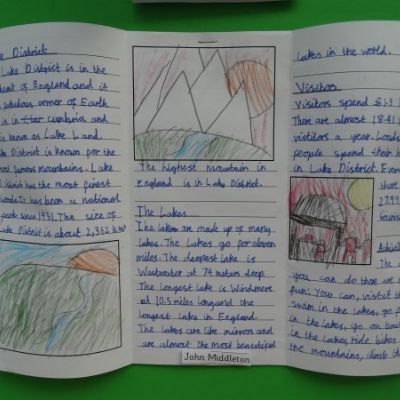 District
Lake District is in the
heat of England and it
corner of Earth.
is in cumbria and
is known as Lake Land.
District is known for the
most famous mountains. Lake
District has the most finest
It has been a national
park since 1951. The size of
District is about 2,362 km
The highest mountain in
england is in Lake District.
The Lakes
The lakes are made up of many
lakes. The Lakes go for eleven
miles. The deepest lake is
Wastwater at 74 meters deep
The longest lake is Windmere
at 10.5 miles long and the
longest lake in England.
The Lakes are like mirrors and
are almost the most beautiful
John Middleton
Lakes in the world.
Visitors
Visitors spend £1.3
There are almost 18.41
visitors a year. Loads
people spend their h
in Lake District. Ever
the
27,99
touris
The
you can do there are
fun. You can, visit
swim in the lakes, go f
in the lakes, go on boa
in the lakes, ride bikes
the mountains, climb th